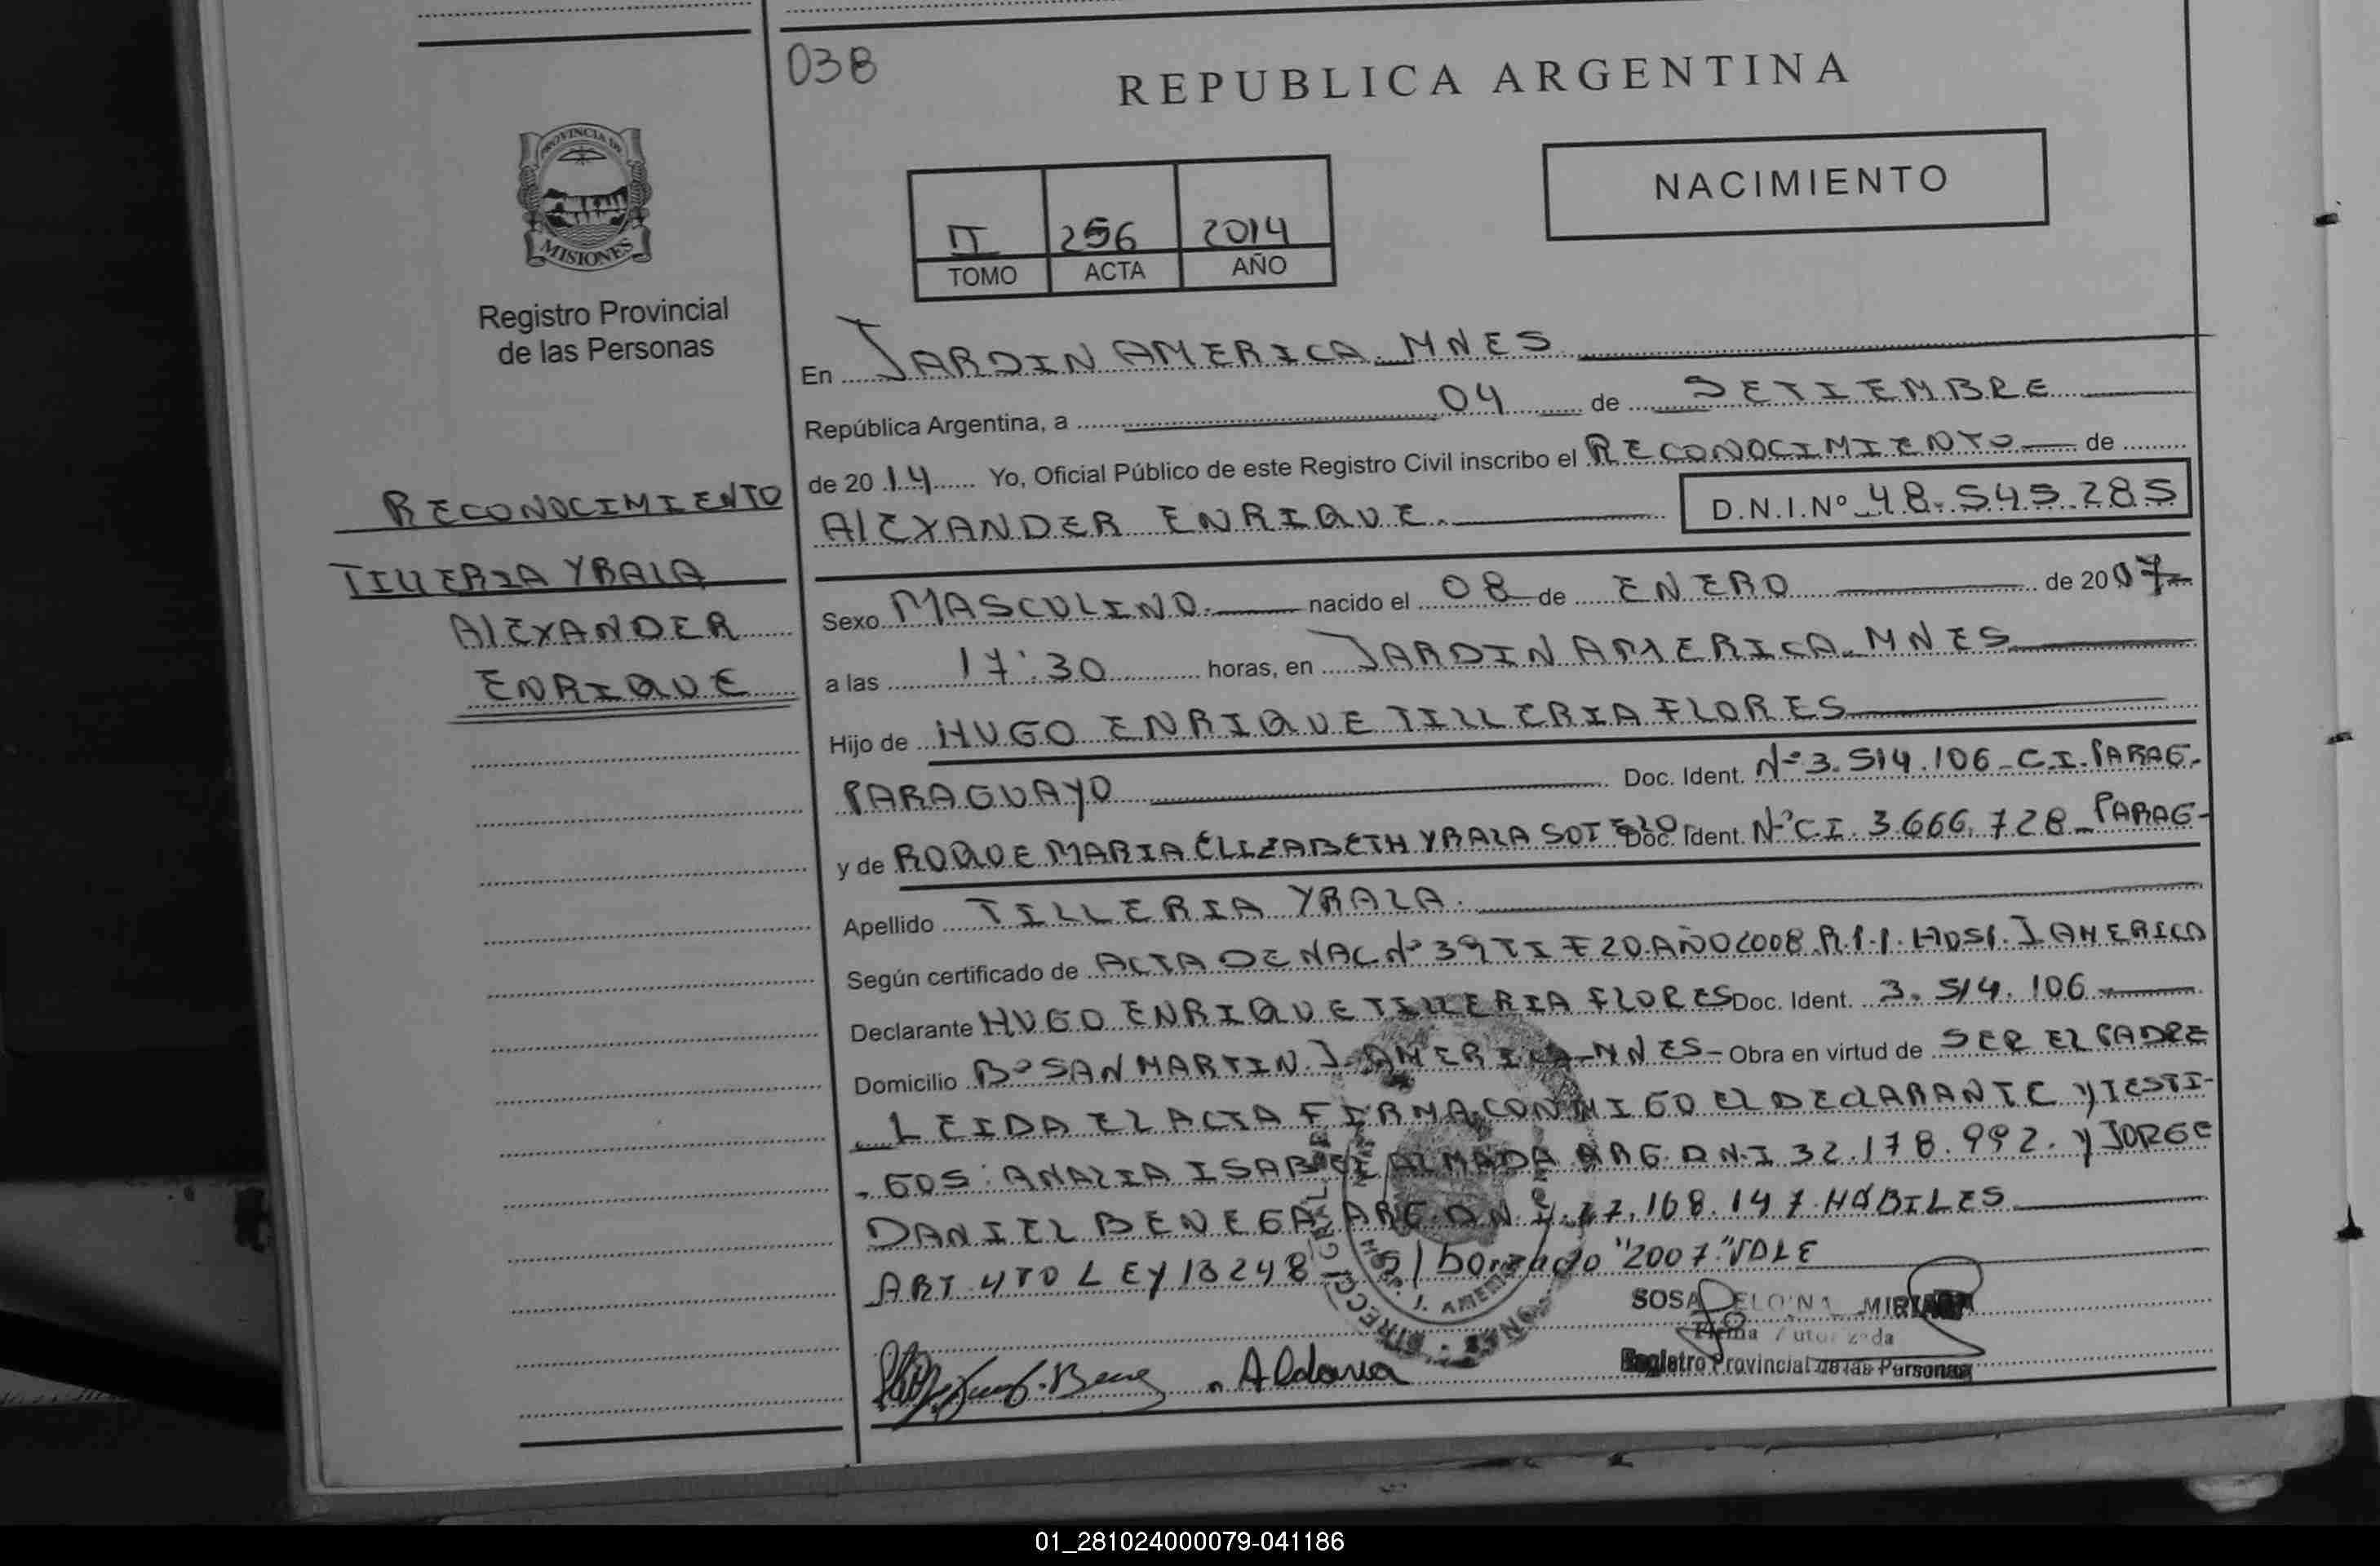 038
REPUBLICA ARGENTINA
PROVINCIA DE
MISIONES
Registro Provincial
de las Personas
NACIMIENTO
II 256 2014
TOMO ACTA AÑO
En JARDIN AMERICA. MNES
República Argentina, a 04 de SETIEMBRE
de 2014 Yo, Oficial Público de este Registro Civil inscribo el RECONOCIMIENTO de
ALEXANDER ENRIQUE. D.N.I.Nº 48.545.285
RECONOCIMIENTO
TILLERIA YBALA
ALEXANDER
ENRIQUE
Sexo MASCULINO. nacido el 08 de ENERO de 2007
a las 17:30 horas, en JARDIN AMERICA. MNES
Hijo de HUGO ENRIQUE TILLERIA FLORES
PARAGUAYO Doc. Ident. Nº 3.514.106 C.I. PARAG.
y de ROQUE MARIA ELIZABETH YBALA SOTELO Doc. Ident. Nº C.I. 3.666.728 PARAG-
Apellido TILLERIA YBALA.
Según certificado de ACTA DE NAC Nº 39 TI F20 AÑO 2008 R.P.P. HOSP. J AMERICA
Declarante HUGO ENRIQUE TILLERIA FLORES Doc. Ident. 3.514.106
Domicilio Bº SAN MARTIN. J. AMERICA-MNES- Obra en virtud de SER EL PADRE
LEIDA EL ACTA FIRMA CONMIGO EL DECLARANTE Y TESTI-
GOS: ANALIA ISABEL ALMADA ARG. DNI 32.178.992. Y JORGE
DANIEL BENEGA ARG. DNI 27.168.147 HÁBILES
ART 4TO LEY 13248 S/ borrado "2007" VALE
SOSA MIRIAM
Firma Autorizada
Registro Provincial de las Personas
J. AMERICA
01_281024000079-041186